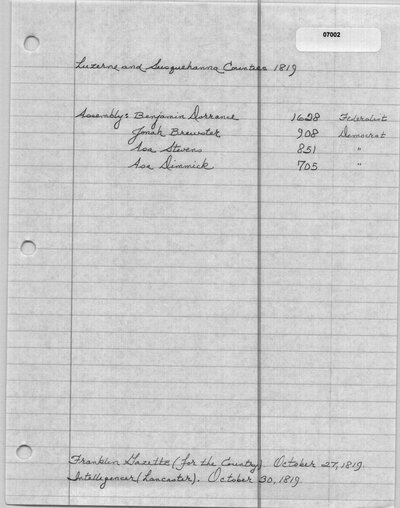 07002
Luzerne and Susquehanna Counties 1819
Assembly: Benjamin Dorrance 1628 Federalist
Jonah Brewster 908 Democrat
Asa Stevens 851 "
Asa Dimmick 705 "
Franklin Gazette (for the Country). October 27, 1819.
Intelligencer (Lancaster). October 30, 1819